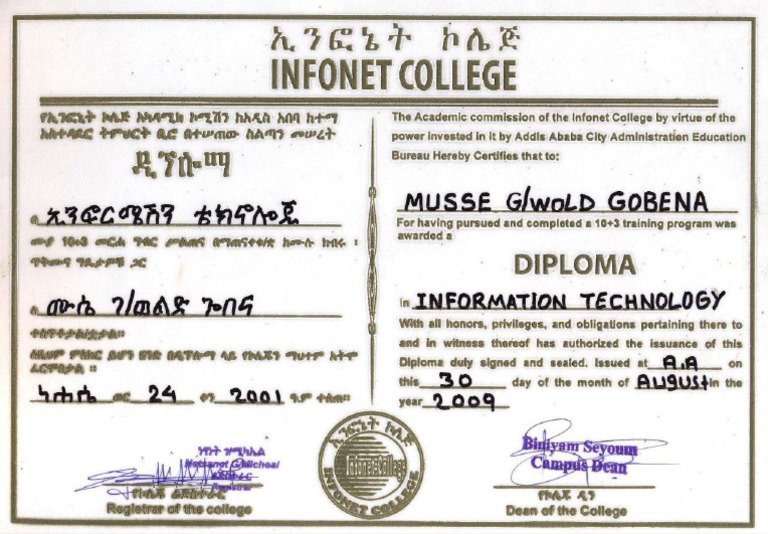 ኢንፎኔት ኮሌጅ
INFONET COLLEGE
የኢንፎኔት ኮሌጅ አካዳሚክ ኮሚሽን ከአዲስ አበባ ከተማ
አስተዳደር ትምህርት ቢሮ በተሠጠው ስልጣን መሠረት
ዲፕሎማ
በ ኢንፎርሜሽን ቴክኖሎጂ
ሙያ 10+3 መርሐ ግብር ሥልጠና በማጠናቀቁ/ቋ ከሙሉ ክብሩ ፣
ጥቅሙና ግዴታዎች ጋር
ለ ሙሴ ገ/ወልድ ጎበና
ተሰጥቶታል/ቷታል።
ለዚህም ምስክር ይሆን ዘንድ በዲፕሎማ ላይ የኮሌጁን ማህተም አትሞ
ፈርሞበታል ።
ነሐሴ ወር 24 ቀን 2001 ዓ.ም ተሰጠ።
The Academic commission of the Infonet College by virtue of the
power invested in it by Addis Ababa City Administration Education
Bureau Hereby Certifies that to:
MUSSE G/WOLD GOBENA
For having pursued and completed a 10+3 training program was
awarded a
DIPLOMA
in INFORMATION TECHNOLOGY
With all honors, privileges, and obligations pertaining there to
and in witness thereof has authorized the issuance of this
Diploma duly signed and sealed. Issued at A.A on
this 30 day of the month of AUGUST in the
year 2009
የኮሌጁ ሬጅስትራር
Registrar of the college
ኢንፎኔት ኮሌጅ
Infonet College
INFONET COLLEGE
Biniyam Seyoum
Campus Dean
የኮሌጁ ዲን
Dean of the College